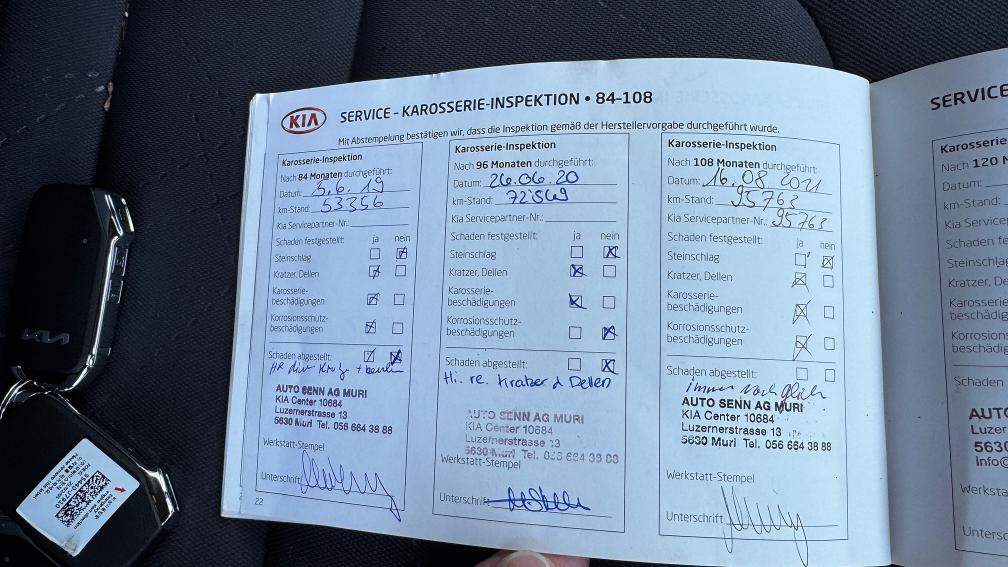 KIA SERVICE - KAROSSERIE-INSPEKTION • 84-108
Mit Abstempelung bestätigen wir, dass die Inspektion gemäß der Herstellervorgabe durchgeführt wurde.
Karosserie-Inspektion
Nach 84 Monaten durchgeführt:
Datum: 3.6.19
km-Stand: 53356
Kia Servicepartner-Nr.:
Schaden festgestellt: ja nein
Steinschlag
Kratzer, Dellen
Karosserie-
beschädigungen
Korrosionsschutz-
beschädigungen
Schaden abgestellt:
HR div. Kratzer +
AUTO SENN AG MURI
KIA Center 10684
Luzernerstrasse 13
5630 Muri Tel. 056 664 38 88
Werkstatt-Stempel
Unterschrift
22
Karosserie-Inspektion
Nach 96 Monaten durchgeführt:
Datum: 26.06.20
km-Stand: 72569
Kia Servicepartner-Nr.:
Schaden festgestellt: ja nein
Steinschlag
Kratzer, Dellen
Karosserie-
beschädigungen
Korrosionsschutz-
beschädigungen
Schaden abgestellt:
Hi. re. Kratzer & Dellen
AUTO SENN AG MURI
KIA Center 10684
Luzernerstrasse 13
5630 Muri Tel. 056 664 38 88
Werkstatt-Stempel
Unterschrift
Karosserie-Inspektion
Nach 108 Monaten durchgeführt:
Datum: 16.08.2021
km-Stand: 95763
Kia Servicepartner-Nr.: 95763
Schaden festgestellt: ja nein
Steinschlag
Kratzer, Dellen
Karosserie-
beschädigungen
Korrosionsschutz-
beschädigungen
Schaden abgestellt:
immer noch gleich
AUTO SENN AG MURI
KIA Center 10684
Luzernerstrasse 13
5630 Muri Tel. 056 664 38 88
Werkstatt-Stempel
Unterschrift
SERVICE
Karosserie
Nach 120 M
Datum:
km-Stand:
Kia Service
Schaden fe
Steinschlag
Kratzer, De
Karosserie
beschädig
Korrosions
beschädig
Schaden
AUTO
Luzer
5630
info@
Werksta
Unters